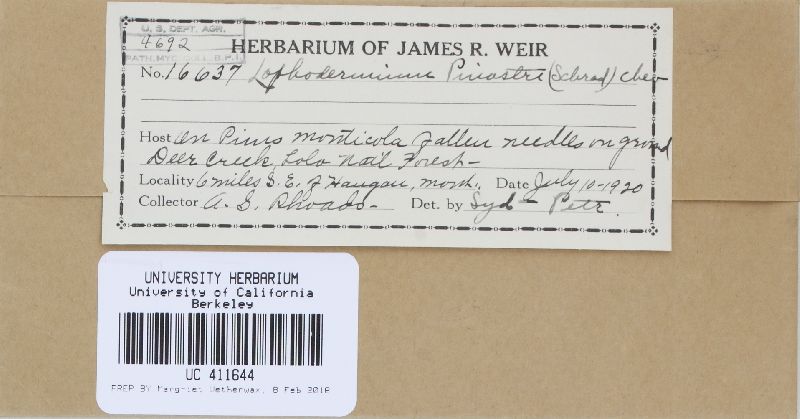 U. S. DEPT. AGR.
4692
PATH. MYC. COLL. B.P.I.
HERBARIUM OF JAMES R. WEIR
No. 16637 Lophodermium Pinastri (Schrad) Chev
Host on Pinus monticola fallen needles on ground
Deer Creek, Lolo Nat'l Forest -
Locality 6 miles S. E. of Haugan, Mont., Date July 10-1920
Collector A. S. Rhoads - Det. by Syd & Petr.
UNIVERSITY HERBARIUM
University of California
Berkeley
UC 411644
PREP BY Margriet Wetherwax, 8 Feb 2018